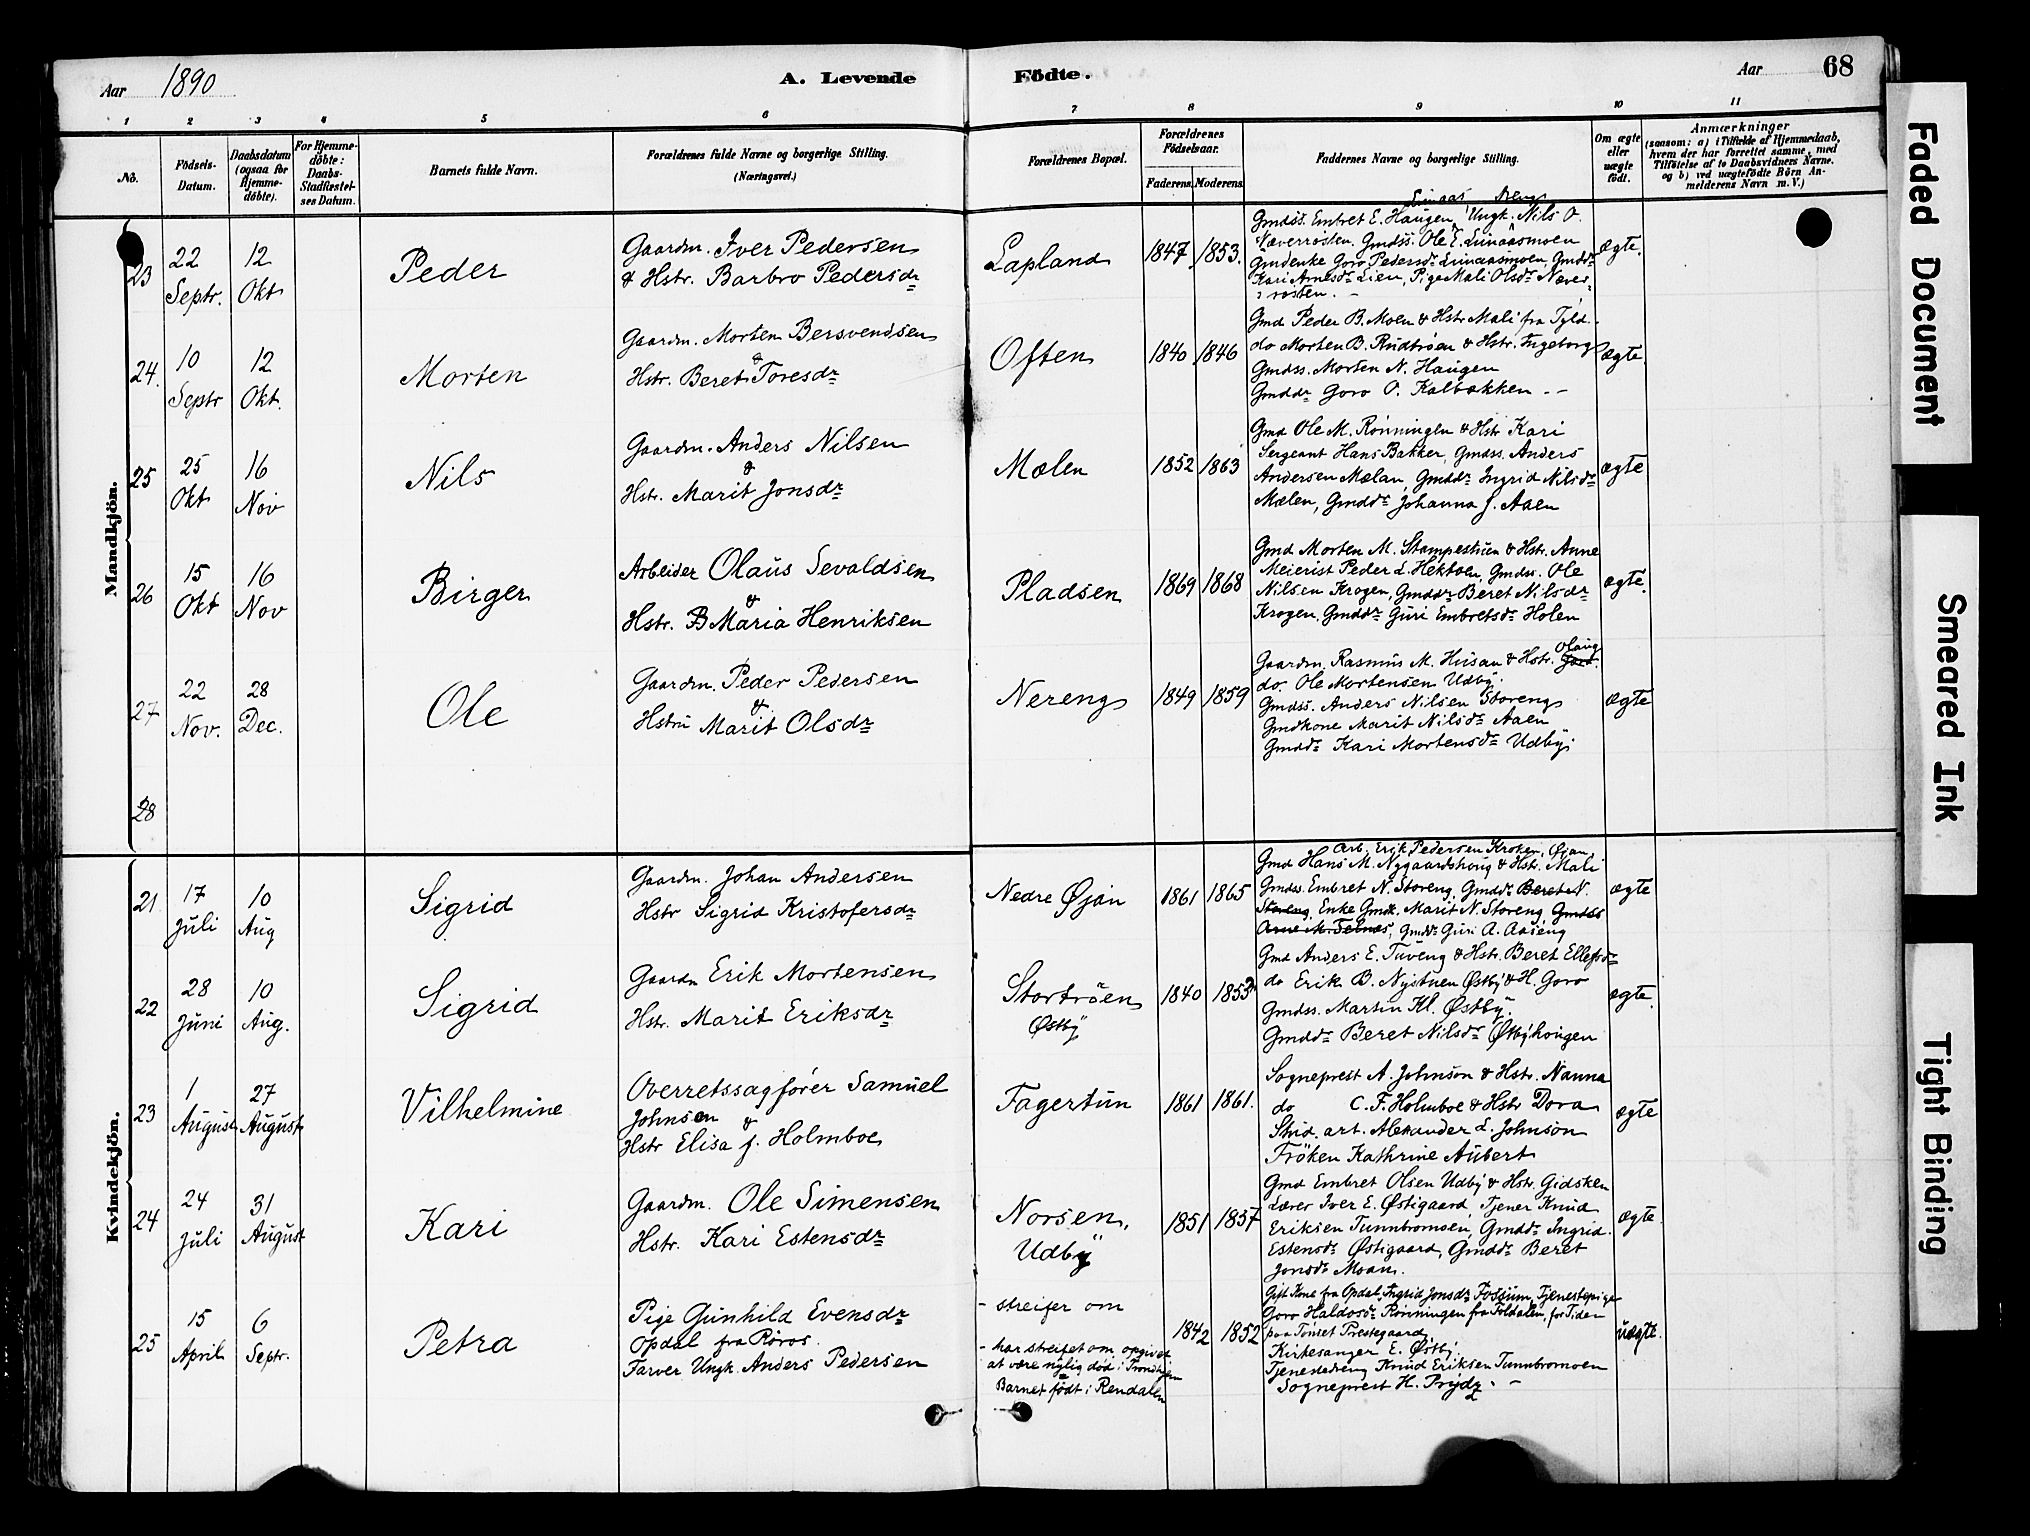 Aar 1890
A. Levende Födte.
Aar 68
1 2 3 4 5 6 7 8 9 10 11
No.
Födsels-Datum.
Daabsdatum (ogsaa for Hjemme-döbte).
For Hjemme-döbte: Daabs-Stadfæstel-ses Datum.
Barnets fulde Navn.
Forældrenes fulde Navne og borgerlige Stilling. (Næringsvei.)
Forældrenes Bopæl.
Forældrenes Födselsaar.
Faderens. Moderens.
Faddernes Navne og borgerlige Stilling.
Om ægte eller uægte födt.
Anmærkninger
(saasom: a) i Tilfælde af Hjemmedaab, hvem der har forrettet samme, med Tilföielse af to Daabsvidners Navne. og b) ved uægtefödte Börn An-melderens Navn m. V.)
Mandkjön.
23
22 Septr.
12 Okt
Peder
Gaardm. Iver Pedersen
& Hstr. Barbro Pedersdr
Lapland
1847 1853.
Gmdss. Embret E. Haugen, Ungk. Nils O.
Næverrösten. Gmdss. Ole E. Lunaasmoen
Gmdenke Goro Pedersdr Lunaasmoen, Gmddr
Kari Arnesdr Lien, Pige Mali Olsdr Næver-
rösten. -
ægte.
24.
10 Septr
12 Okt.
Morten
Gaardm. Morten Bersvendsen
&
Hstr. Beret Toresdr
Often
1840 1846
Gmd Peder B. Moen & Hstr Mali fra Tyld.
do Morten B. Rudtröen & Hstr. Ingeborg
Gmdss. Morten N. Haugen
Gmddr Goro O. Kalbakken. -
ægte.
25
25 Okt
16 Nov
Nils
Gaardm. Anders Nilsen
&
Hstr. Marit Jonsdr
Mælen
1852 1863
Gmd Ole M. Rönningen & Hstr Kari
Sergeant Hans Bakker, Gmdss. Anders
Andersen Mælan, Gmddr Ingrid Nilsdr
Mælen, Gmddr Johanna J. Aaen
ægte
26
15 Okt
16 Nov
Birger
Arbeider Olaus Sevaldsen
&
Hstr. B Maria Henriksen
Pladsen
1869 1868
Gmd Morten M. Stampestuen & Hstr. Anne
Meierist Peder L. Hektoen, Gmdss. Ole
Nilsen Krogen, Gmddr Beret Nilsdr
Krogen, Gmddr Guri Embretsdr Holen
ægte.
27
22 Nov.
28 Dec.
Ole
Gaardm. Peder Pedersen
&
Hstru Marit Olsdr
Nereng
1849 1859
Gaardm. Rasmus M. Husan & Hstr. Olaug
do. Ole Mortensen Udby.
Gmdss. Anders Nilsen Storeng
Gmdkone Marit Nilsdr Aaen
Gmddr Kari Mortensdr Udby.
ægte
28
Kvindekjön.
21
17 Juli
10 Aug
Sigrid
Gaardm. Johan Andersen
Hstr Sigrid Kristofersdr
Nedre Øjan
1861 1865
Arb. Erik Pedersen Kroken, Øjan,
Gmd Hans M. Nygaardshoug & Hstr. Mali
Gmdss. Embret N. Storeng, Gmddr Beret N.
Storeng, Enke Gmdk. Marit N. Storeng, Gmdss
Arne M. Telnæs, Gmddr Guri A. Aaseng
ægte
22
28 Juni
10 Aug.
Sigrid
Gaardm Erik Mortensen
Hstr. Marit Eriksdr
Stortröen
Østby
1840 1853
Gmd Anders E. Tuveng & Hstr. Beret Ellefsdr
do Erik B. Nystuen Østby & H. Goro
Gmdss. Martin Kl. Østby.
Gmddr Beret Nilsdr Østbyhougen
ægte.
23
1 August
27 August
Vilhelmine
Overretssagförer Samuel
Johnsen
&
Hstr Elisa J. Holmboe
Fagertun
1861 1861.
Sogneprest A. Johnson & Hstr. Nanna
do C. F. Holmboe & Hstr Dora
Stud. art. Alexander L. Johnson
Fröken Kathrine Aubert
ægte
24
24 Juli
31 August
Kari
Gaardm. Ole Simensen
Hstr. Kari Estensdr
Norsen,
Udby
1851 1857
Gmd Embret Olsen Udby & Hstr. Gidsken
Lærer Iver E. Østigaard, Tjener Knud
Eriksen Tunnbromoen, Gmddr Ingrid
Estensdr Østigaard, Gmddr Beret
Jonsdr Moan.
ægte.
25
15 April
6 Septr.
Petra
Pige Gunhild Evensdr
Opdal fra Röros.
Farver Ungk. Anders Pedersen
- streifer om
- har streifet om opgives
at være nylig död i Trondhjem
Barnet födt i Rendalen
1842 1852
Gift Kone fra Opdal, Ingrid Jonsdr Fossum, Tjenestepige
Goro Haldosdr Rönningen fra Foldalen, for Tiden
paa Tönset Prestegaard,
Kirkesanger E. Østby.
Tjenestedreng Knud Eriksen Tunnbromoen
Sogneprest H. Prydz. -
uægte.
Faded Document
Smeared Ink
Tight Binding